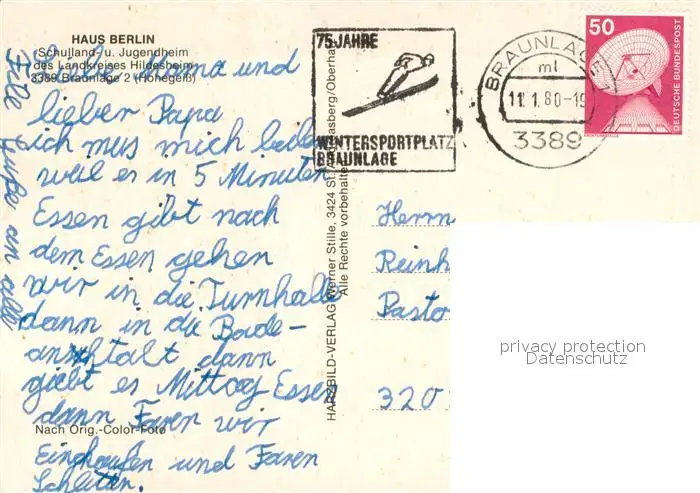 HAUS BERLIN
Schulland- u. Jugendheim
des Landkreises Hildesheim
3389 Braunlage 2 (Hohegeiß)
und
lieber Papa
ich mus mich
weil es in 5 Minuten
Essen gibt nach
dem Essen gehen
wir in die Turnhalle
dann in die Bade-
anschtalt dann
giebt es Mittag Essen
dann Faren wir
Einghaufen und Faren
Schlitten.
Nach Orig.-Color-Foto
File Grüße an alle
HARZBILD-VERLAG Werner Stille, 3424 St.
Alle Rechte vorbehalten
75 JAHRE
WINTERSPORTPLATZ
BRAUNLAGE
BRAUNLAGE 1
ml
11.1.80-19
3389
50
DEUTSCHE BUNDESPOST
Herrn
Reinh
Pasto
320
privacy protection
Datenschutz